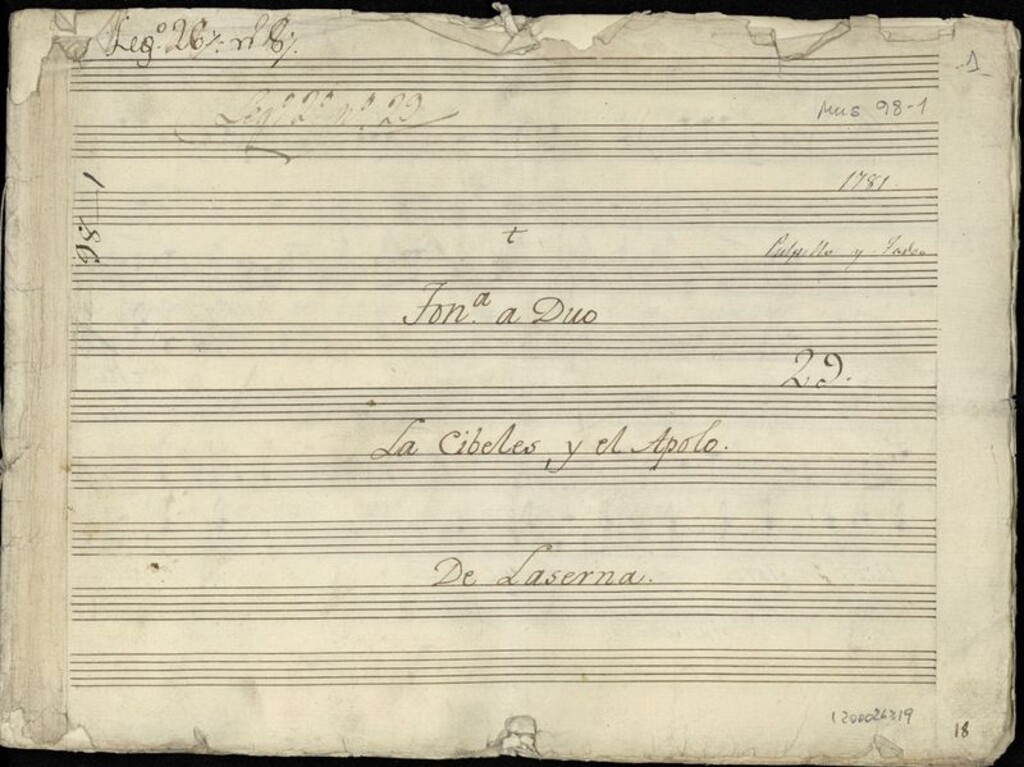 Leg.º 26 /. nº 6 /.
1
Leg.º 2º nº 29
Mus 98-1
1781.
98-1
t
Pulpillo y Tadeo
Ton.ª a Duo
29.
La Cibeles, y el Apolo.
De Laserna.
1200026319
18